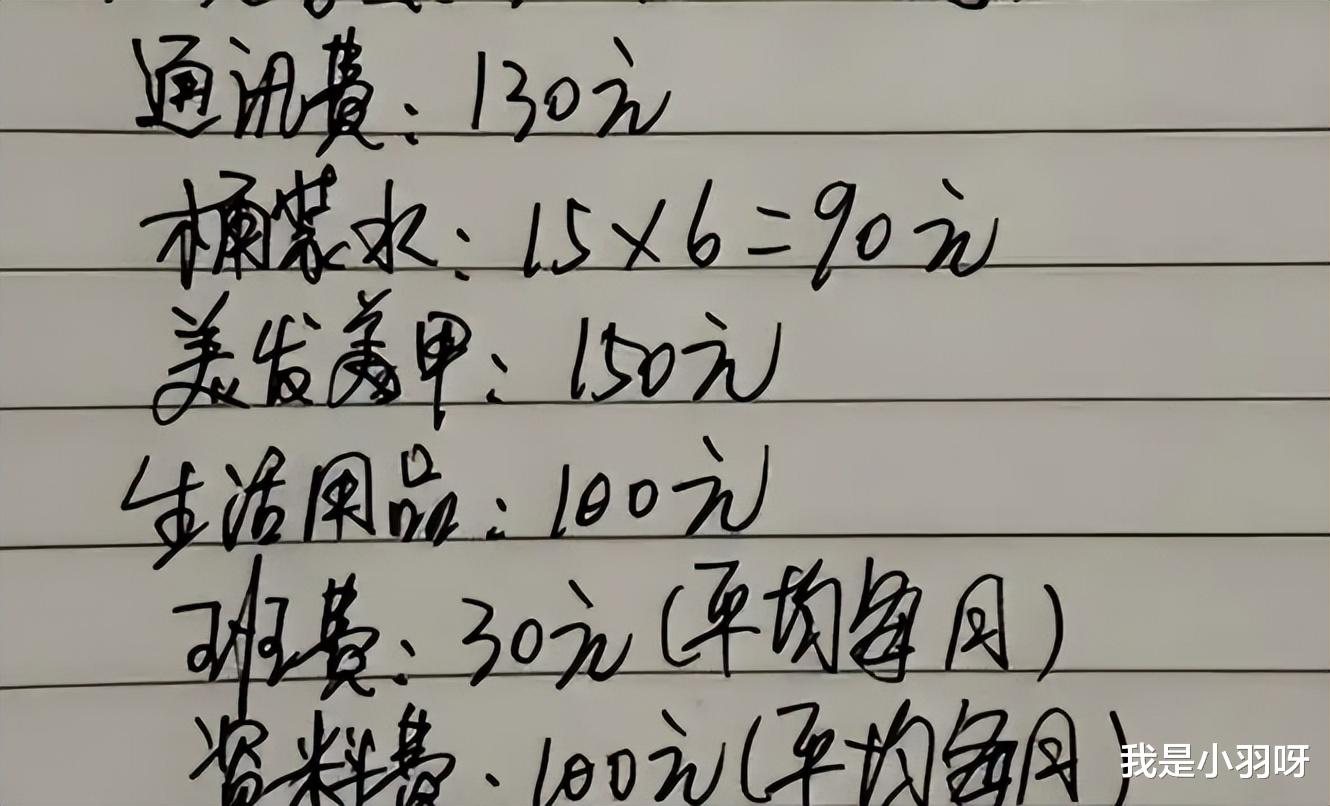 通讯费：130元
桶装水：15×6=90元
美发美甲：150元
生活用品：100元
班费：30元（平均每月）
资料费：100元（平均每月）
我是小羽呀